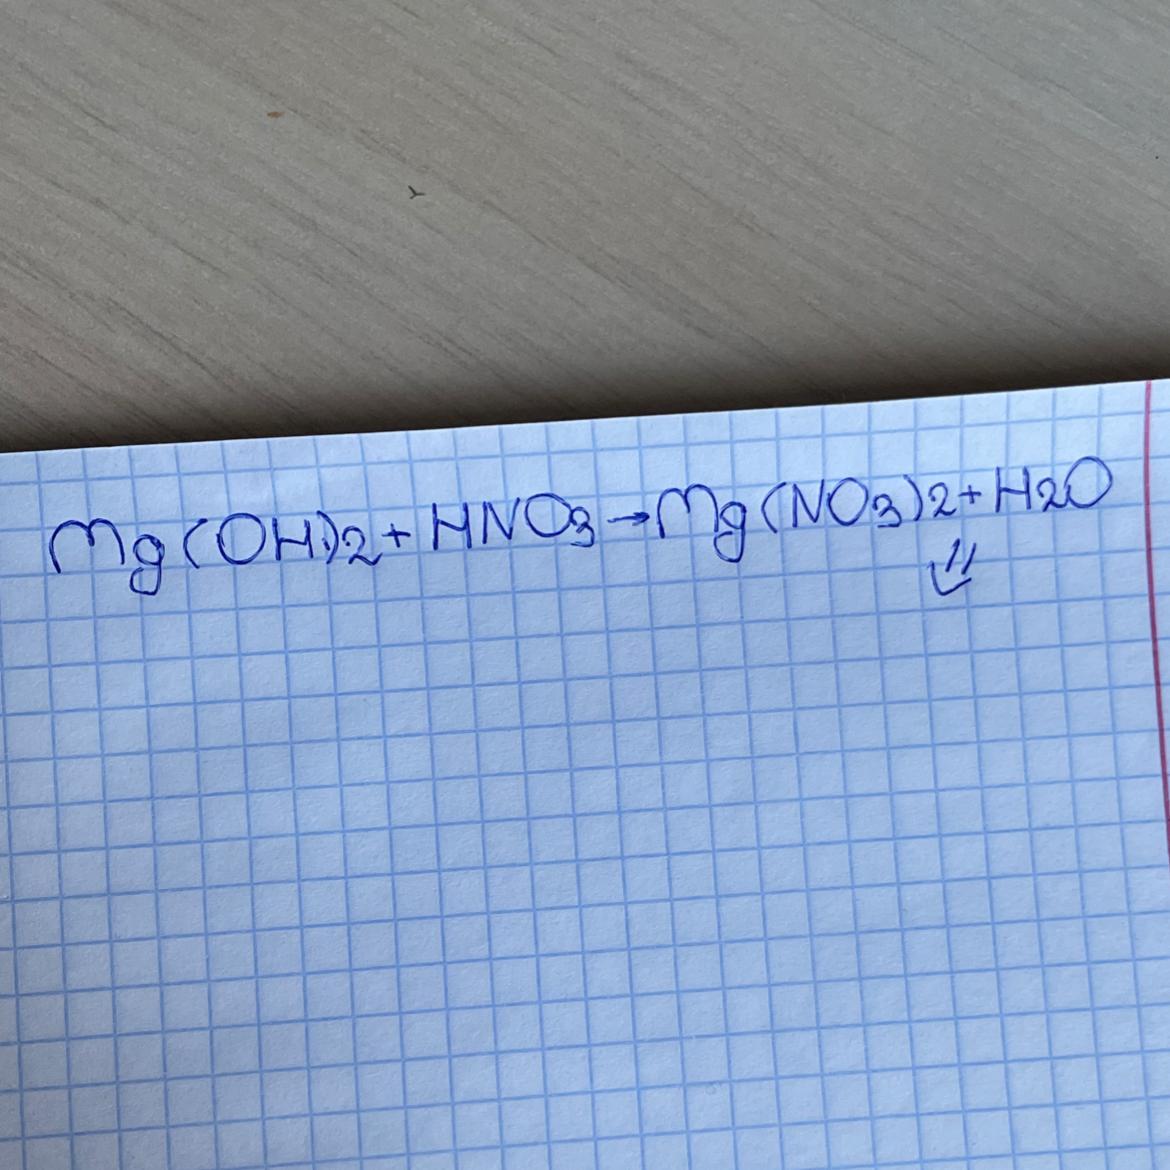 Mg(OH)2+HNO3→Mg(NO3)2+H2O